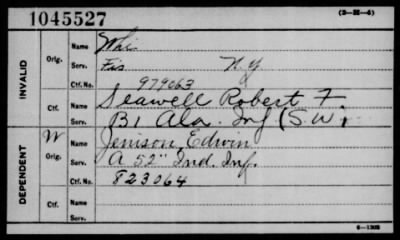 1045527 (3-M-4)
INVALID
Orig.
Name Whi
Serv. Fis N.Y
Ctf.No. 979063
Ctf.
Name Seawell Robert F.
Serv. B1 Ala. Inf (S.W.)
DEPENDENT
W
Orig.
Name Jenison, Edwin
Serv. A 52" Ind. Inf.
Ctf.No. 823064
Ctf.
Name
Serv.
6-1305